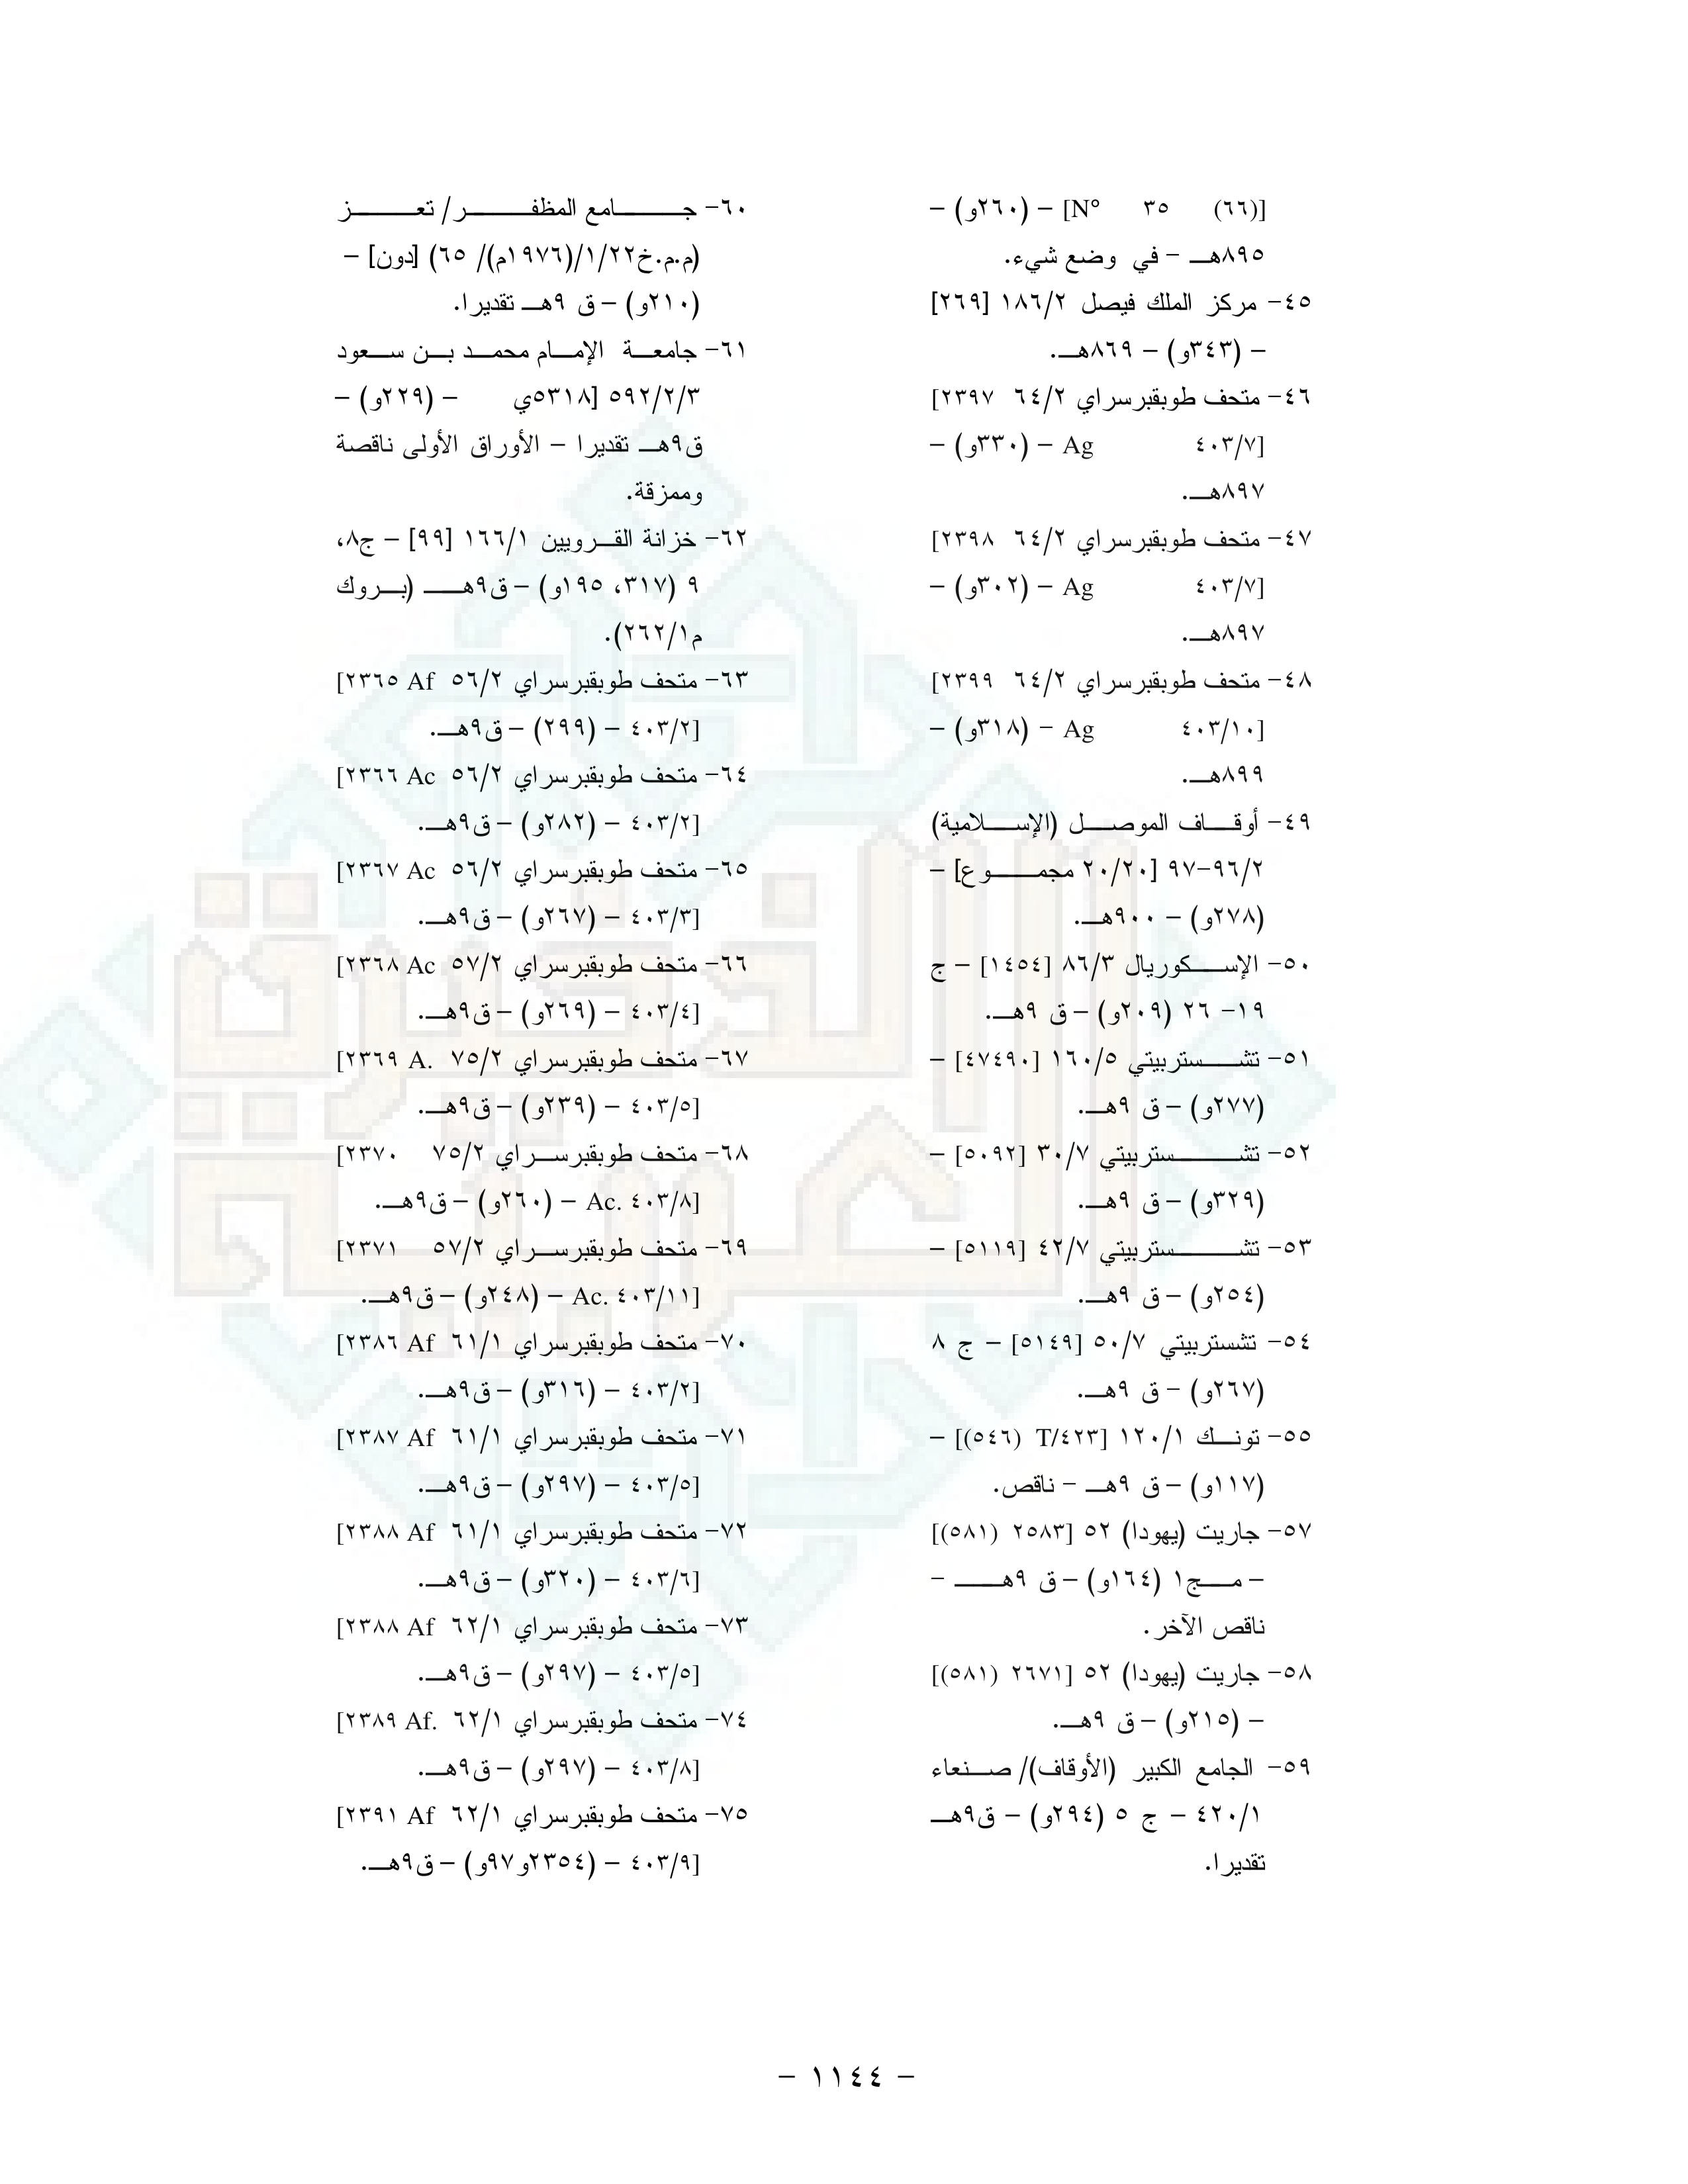 [(٦٦) ٣٥ N°] – (٢٦٠و) –
٨٩٥هـ – في وضع شيء.
٤٥- مركز الملك فيصل ١٨٦/٢ [٢٦٩]
– (٣٤٣و) – ٨٦٩هـ.
٤٦- متحف طوبقبرسراي ٦٤/٢ ٢٣٩٧]
٤٠٣/٧] Ag – (٣٣٠و) –
٨٩٧هـ.
٤٧- متحف طوبقبرسراي ٦٤/٢ ٢٣٩٨]
٤٠٣/٧] Ag – (٣٠٢و) –
٨٩٧هـ.
٤٨- متحف طوبقبرسراي ٦٤/٢ ٢٣٩٩]
٤٠٣/١٠] Ag – (٣١٨و) –
٨٩٩هـ.
٤٩- أوقاف الموصل (الإسلامية)
٩٦/٢-٩٧ [٢٠/٢٠ مجموع] –
(٢٧٨و) – ٩٠٠هـ.
٥٠- الإسكوريال ٨٦/٣ [١٤٥٤] – ج
١٩- ٢٦ (٢٠٩و) – ق ٩هـ.
٥١- تشستربيتي ١٦٠/٥ [٤٧٤٩٠] –
(٢٧٧و) – ق ٩هـ.
٥٢- تشستربيتي ٣٠/٧ [٥٠٩٢] –
(٣٢٩و) – ق ٩هـ.
٥٣- تشستربيتي ٤٢/٧ [٥١١٩] –
(٢٥٤و) – ق ٩هـ.
٥٤- تشستربيتي ٥٠/٧ [٥١٤٩] – ج ٨
(٢٦٧و) – ق ٩هـ.
٥٥- تونك ١٢٠/١ [T/٤٢٣ (٥٤٦)] –
(١١٧و) – ق ٩هـ – ناقص.
٥٧- جاريت (يهودا) ٥٢ [٢٥٨٣ (٥٨١)]
– مج١ (١٦٤و) – ق ٩هـ –
ناقص الآخر.
٥٨- جاريت (يهودا) ٥٢ [٢٦٧١ (٥٨١)]
– (٢١٥و) – ق ٩هـ.
٥٩- الجامع الكبير (الأوقاف)/ صنعاء
٤٢٠/١ – ج ٥ (٢٩٤و) – ق٩هـ
تقديرا.
٦٠- جامع المظفر/ تعز
(م.م.خ١/٢٢/(١٩٧٦م)/ ٦٥) [دون] –
(٢١٠و) – ق ٩هـ تقديرا.
٦١- جامعة الإمام محمد بن سعود
٥٩٢/٢/٣ [٥٣١٨ي – (٢٢٩و) –
ق٩هـ تقديرا – الأوراق الأولى ناقصة
وممزقة.
٦٢- خزانة القرويين ١٦٦/١ [٩٩] – ج٨،
٩ (٣١٧، ١٩٥و) – ق٩هـ (بروك
م٢٦٢/١).
٦٣- متحف طوبقبرسراي ٥٦/٢ ٢٣٦٥ Af]
٤٠٣/٢] – (٢٩٩) – ق٩هـ.
٦٤- متحف طوبقبرسراي ٥٦/٢ ٢٣٦٦ Ac]
٤٠٣/٢] – (٢٨٢و) – ق٩هـ.
٦٥- متحف طوبقبرسراي ٥٦/٢ ٢٣٦٧ Ac]
٤٠٣/٣] – (٢٦٧و) – ق٩هـ.
٦٦- متحف طوبقبرسراي ٥٧/٢ ٢٣٦٨ Ac]
٤٠٣/٤] – (٢٦٩و) – ق٩هـ.
٦٧- متحف طوبقبرسراي ٧٥/٢ ٢٣٦٩ A.]
٤٠٣/٥] – (٢٣٩و) – ق٩هـ.
٦٨- متحف طوبقبرسراي ٧٥/٢ ٢٣٧٠]
٤٠٣/٨] Ac. – (٢٦٠و) – ق٩هـ.
٦٩- متحف طوبقبرسراي ٥٧/٢ ٢٣٧١]
٤٠٣/١١] Ac. – (٢٤٨و) – ق٩هـ.
٧٠- متحف طوبقبرسراي ٦١/١ ٢٣٨٦ Af]
٤٠٣/٢] – (٣١٦و) – ق٩هـ.
٧١- متحف طوبقبرسراي ٦١/١ ٢٣٨٧ Af]
٤٠٣/٥] – (٢٩٧و) – ق٩هـ.
٧٢- متحف طوبقبرسراي ٦١/١ ٢٣٨٨ Af]
٤٠٣/٦] – (٣٢٠و) – ق٩هـ.
٧٣- متحف طوبقبرسراي ٦٢/١ ٢٣٨٨ Af]
٤٠٣/٥] – (٢٩٧و) – ق٩هـ.
٧٤- متحف طوبقبرسراي ٦٢/١ ٢٣٨٩ Af.]
٤٠٣/٨] – (٢٩٧و) – ق٩هـ.
٧٥- متحف طوبقبرسراي ٦٢/١ ٢٣٩١ Af]
٤٠٣/٩] – (٢٣٥٤و٩٧و) – ق٩هـ.
– ١١٤٤ –